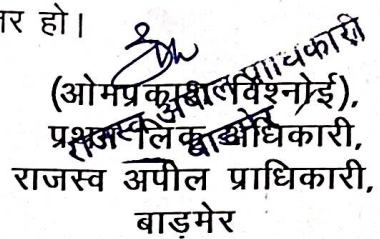 र हो।
(ओमप्रकाश विश्नोई),
प्रथम लिंक अधिकारी,
राजस्व अपील प्राधिकारी,
बाड़मेर
राजस्व अपील प्राधिकारी
बाड़मेर